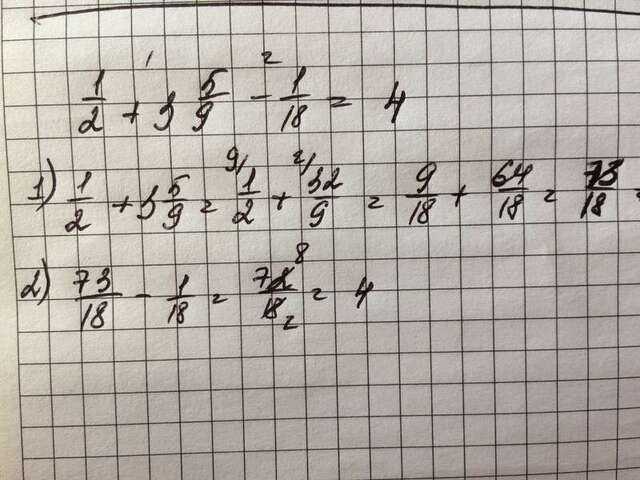 1/2 + 3 5/9 - 1/18 = 4
1) 1/2 + 3 5/9 = 1/2 + 32/9 = 9/18 + 64/18 = 73/18 =
2) 73/18 - 1/18 = 72/18 = 4